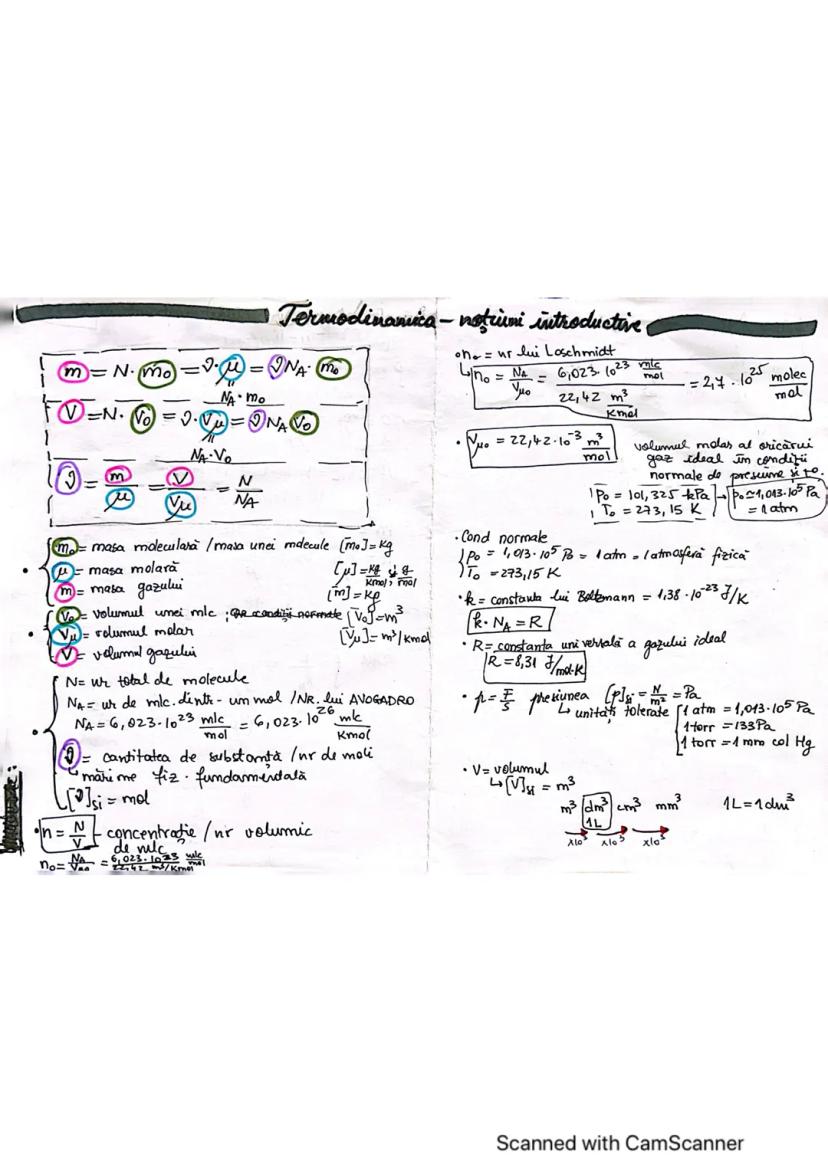 Termodinamica – noțiuni introductive
m = N · m₀ = ν · μ = ν N_A · m₀
N_A · m₀
V = N · V₀ = ν · V_μ = ν N_A V₀
N_A · V₀
ν = m/μ = V/V_μ = N/N_A
m₀ = masa moleculară / masa unei molecule [m₀] = kg
μ = masa molară [μ] = kg/kmol și g/mol
m = masa gazului [m] = kg
V₀ = volumul unei mlc ; [V₀] = m³
V_μ = volumul molar [V_μ] = m³/kmol
V = volumul gazului
N = nr total de molecule
N_A = nr de mlc. dintr-un mol / NR. lui AVOGADRO
N_A = 6,023 · 10²³ mlc/mol = 6,023 · 10²⁶ mlc/kmol
ν = cantitatea de substanță / nr de moli
mărime fiz. fundamentală
[ν]si = mol
n = N/V concentrație / nr volumic
de mlc
n₀ = N_A/V_μ₀ = 6,023 · 10²³ mlc/mol / 22,42 m³/Kmol
n₀ = nr lui Loschmidt
n₀ = N_A/V_μ₀ = 6,023 · 10²³ mlc/mol / 22,42 m³/Kmol = 2,7 · 10²⁵ molec/mol
V_μ₀ = 22,42 · 10⁻³ m³/mol
volumul molar al oricărui
gaz ideal în condiții
normale de presiune și t°
p₀ = 101,325 kPa → p₀ ≃ 1,013 · 10⁵ Pa
T₀ = 273,15 K = 1 atm
Cond normale
p₀ = 1,013 · 10⁵ Pa = 1 atm = 1 atmosferă fizică
T₀ = 273,15 K
k = constanta lui Boltzmann = 1,38 · 10⁻²³ J/K
k · N_A = R
R = constanta universală a gazului ideal
R = 8,31 J/mol·K
p = F/S presiunea [p]si = N/m² = Pa
↳ unități tolerate 1 atm = 1,013 · 10⁵ Pa
1 torr = 133 Pa
1 torr = 1 mm col Hg
V = volumul
↳ [V]si = m³
m³ dm³ cm³ mm³ 1L = 1dm³
1L
x10³ x10³ x10³
Scanned with CamScanner